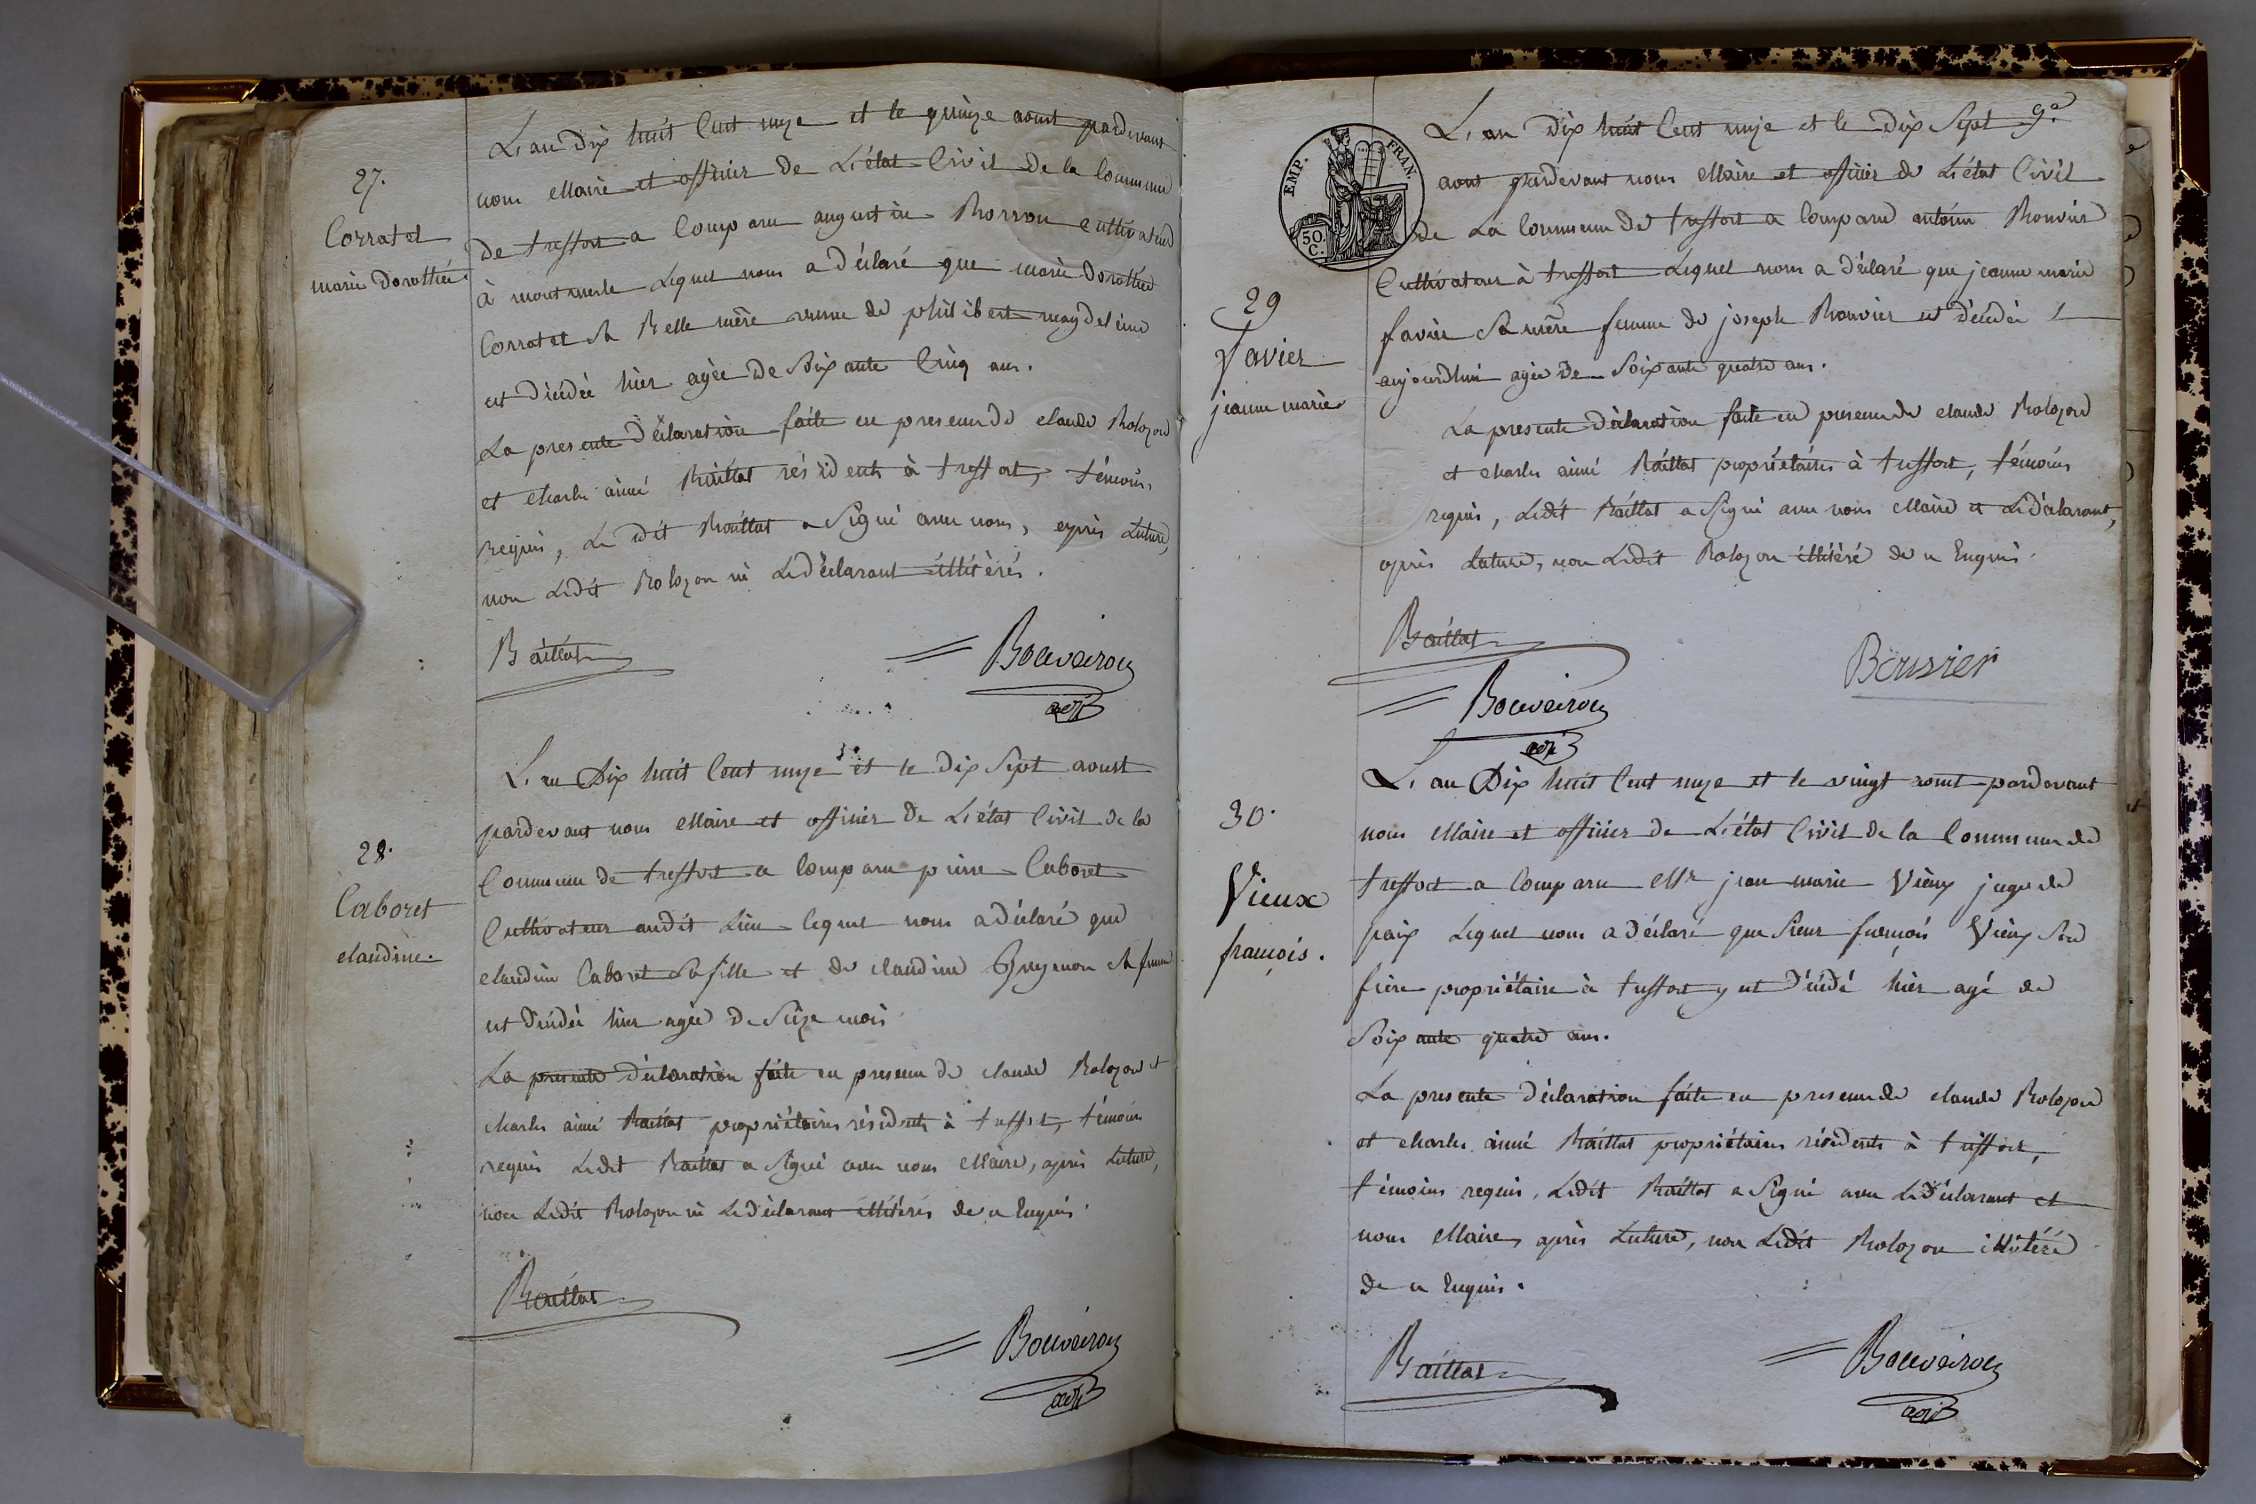 27.
Corratet
marie Dorothée.
L'an Dix huit Cent onze et le quinze aoust pardevant
nous Maire et officier de L'état Civil de la Commune
de treffort a Comparu augustin Borron Cultivateur
à montmerle Lequel nous a déclaré que marie Dorothée
Corratet sa Belle mère veuve de philibert
est décédée hier agée de Soixante Cinq ans.
La presente Déclaration faite en presence de claude Bolozon
et charles aimé Baillat résidents à treffort, témoins
Requis, Le dit Baillat a Signé avec nous, après Lecture,
non Ledit Bolozon ni Le déclarant illitérés.
Baillat
Bouveiron
adj
28.
Caboret
claudine.
L'an Dix huit Cent onze et le dix Sept aoust
pardevant nous Maire et officier de L'état Civil de la
Commune de treffort a Comparu pierre Caboret
Cultivateur audit Lieu lequel nous a déclaré que
claudine Caboret Sa fille et de claudine Guynon sa femme
est décédée hier agée de Seize mois
La presente déclaration faite en presence de claude Bolozon et
charles aimé Baillat propriétaires résidents à treffort, témoins
requis Ledit Baillat a Signé avec nous Maire, après Lecture,
non Ledit Bolozon ni Le déclarant illitérés de ce Enquis.
Baillat
Bouveiron
adj
EMP. FRAN.
50.
C.
29
Favier
jeanne marie
L'an Dix huit Cent onze et le Dix Sept
aoust pardevant nous Maire et officier de L'état Civil
de La Commune de treffort a Comparu antoine Bouvier
Cultivateur à treffort Lequel nous a déclaré que jeanne marie
favier Sa mère femme de joseph Bouvier est décédée
aujourdhui agée de Soixante quatre ans.
La presente déclaration faite en presence de claude Bolozon
et charles aimé Baillat propriétaires à treffort, témoins
requis, Ledit Baillat a Signé avec nous Maire et Le déclarant,
après Lecture, non Ledit Bolozon illitéré de ce Enquis.
Baillat
Bouvier
Bouveiron
adj
30.
Vieux
françois.
L'an Dix huit Cent onze et le vingt aoust pardevant
nous Maire et officier de L'état Civil de la Commune de
treffort a Comparu Mr jean marie Vieux juge de
paix Lequel nous a déclaré que Sieur françois Vieux Son
frère propriétaire à treffort y est décédé hier agé de
Soixante quatre ans.
La presente Déclaration faite en presence de claude Bolozon
et charles aimé Baillat propriétaires résidents à treffort,
témoins requis, Ledit Baillat a Signé avec Le déclarant et
nous Maire, après Lecture, non Ledit Bolozon illitéré
de ce Enquis.
Baillat
Bouveiron
adj